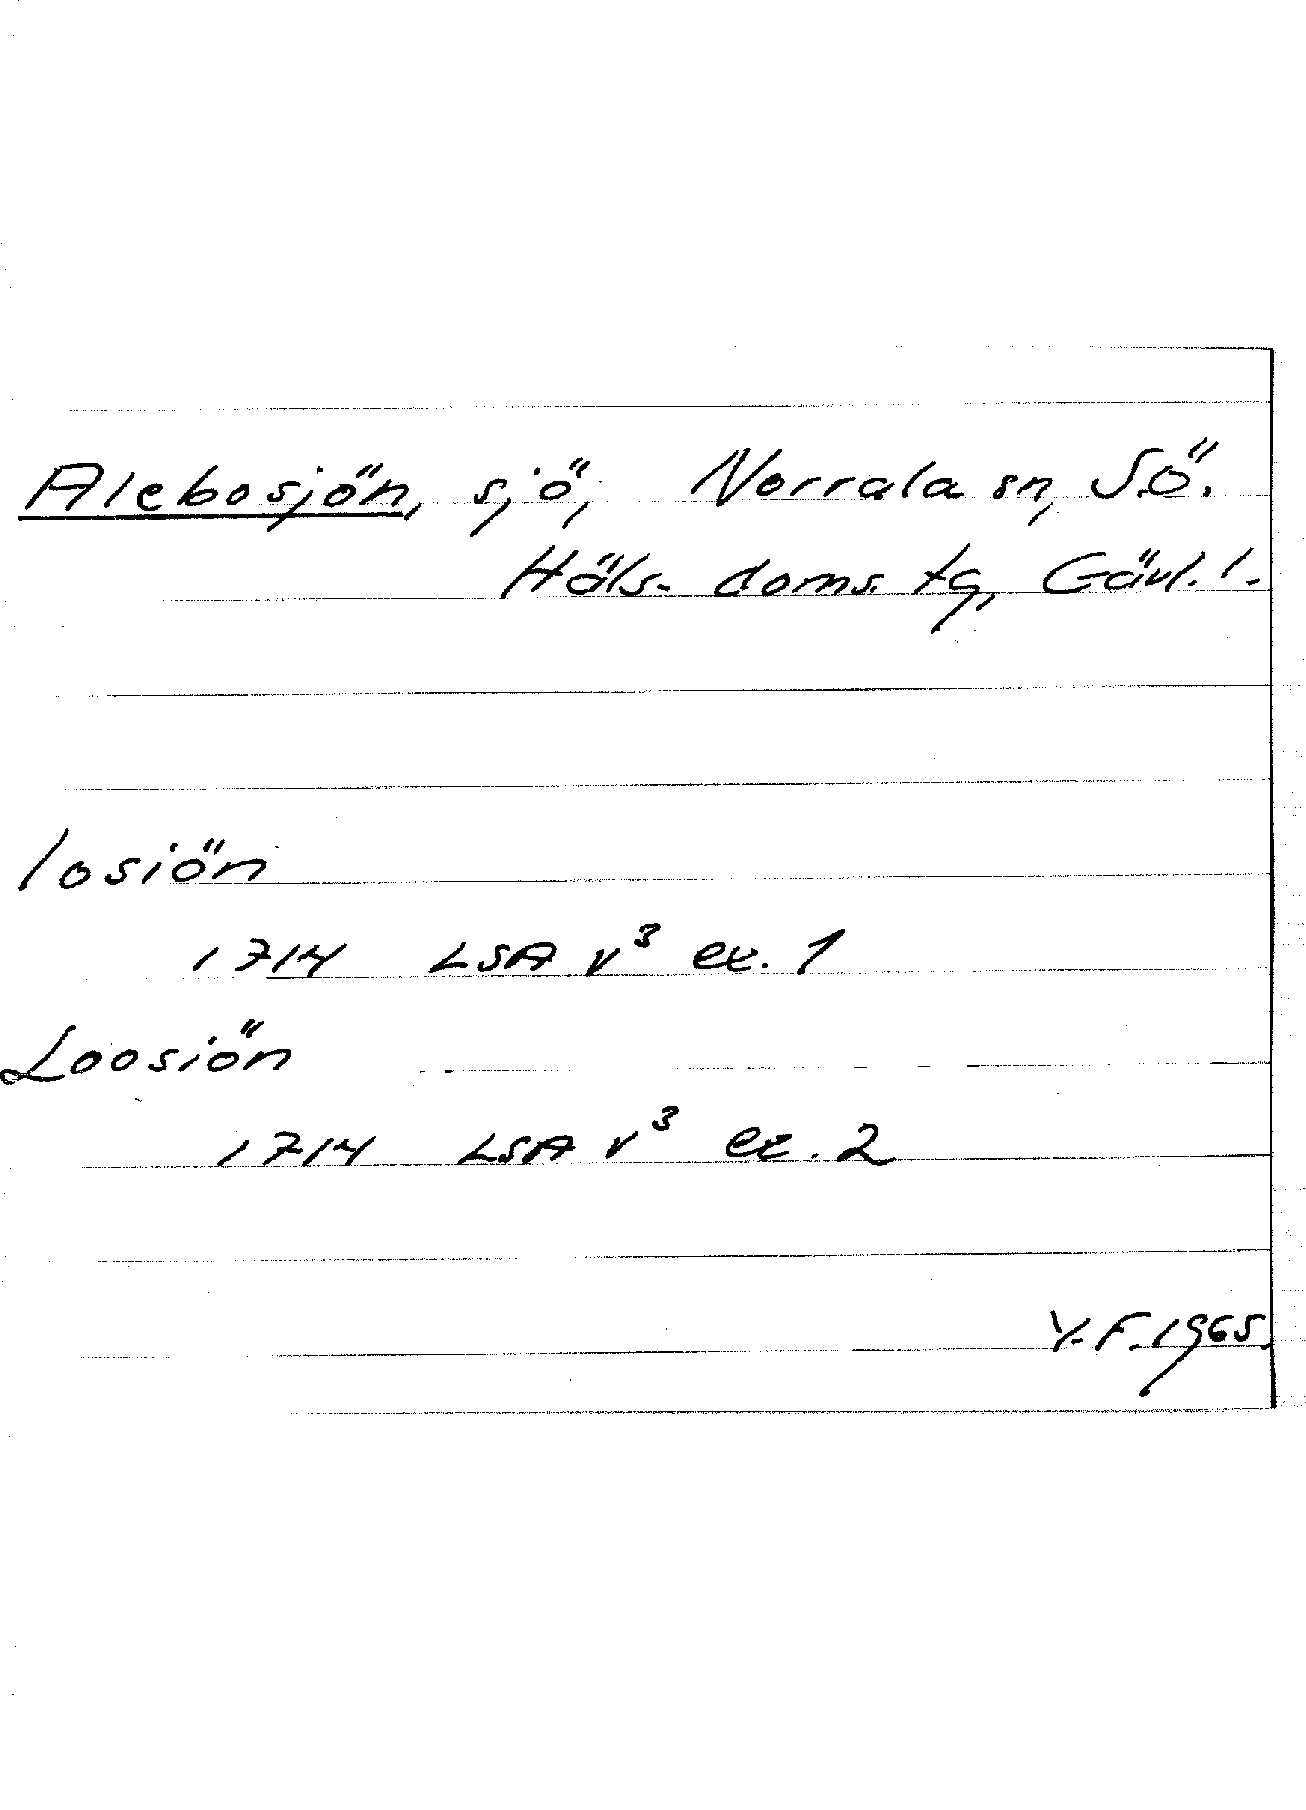 Alebosjön, sjö, Norrala sn, S.Ö.
Häls. doms. tg, Gävl. l.
losiön
1714 LSA v³ ex. 1
Loosiön
1714 LSA v³ ex. 2
Y.F. 1965.